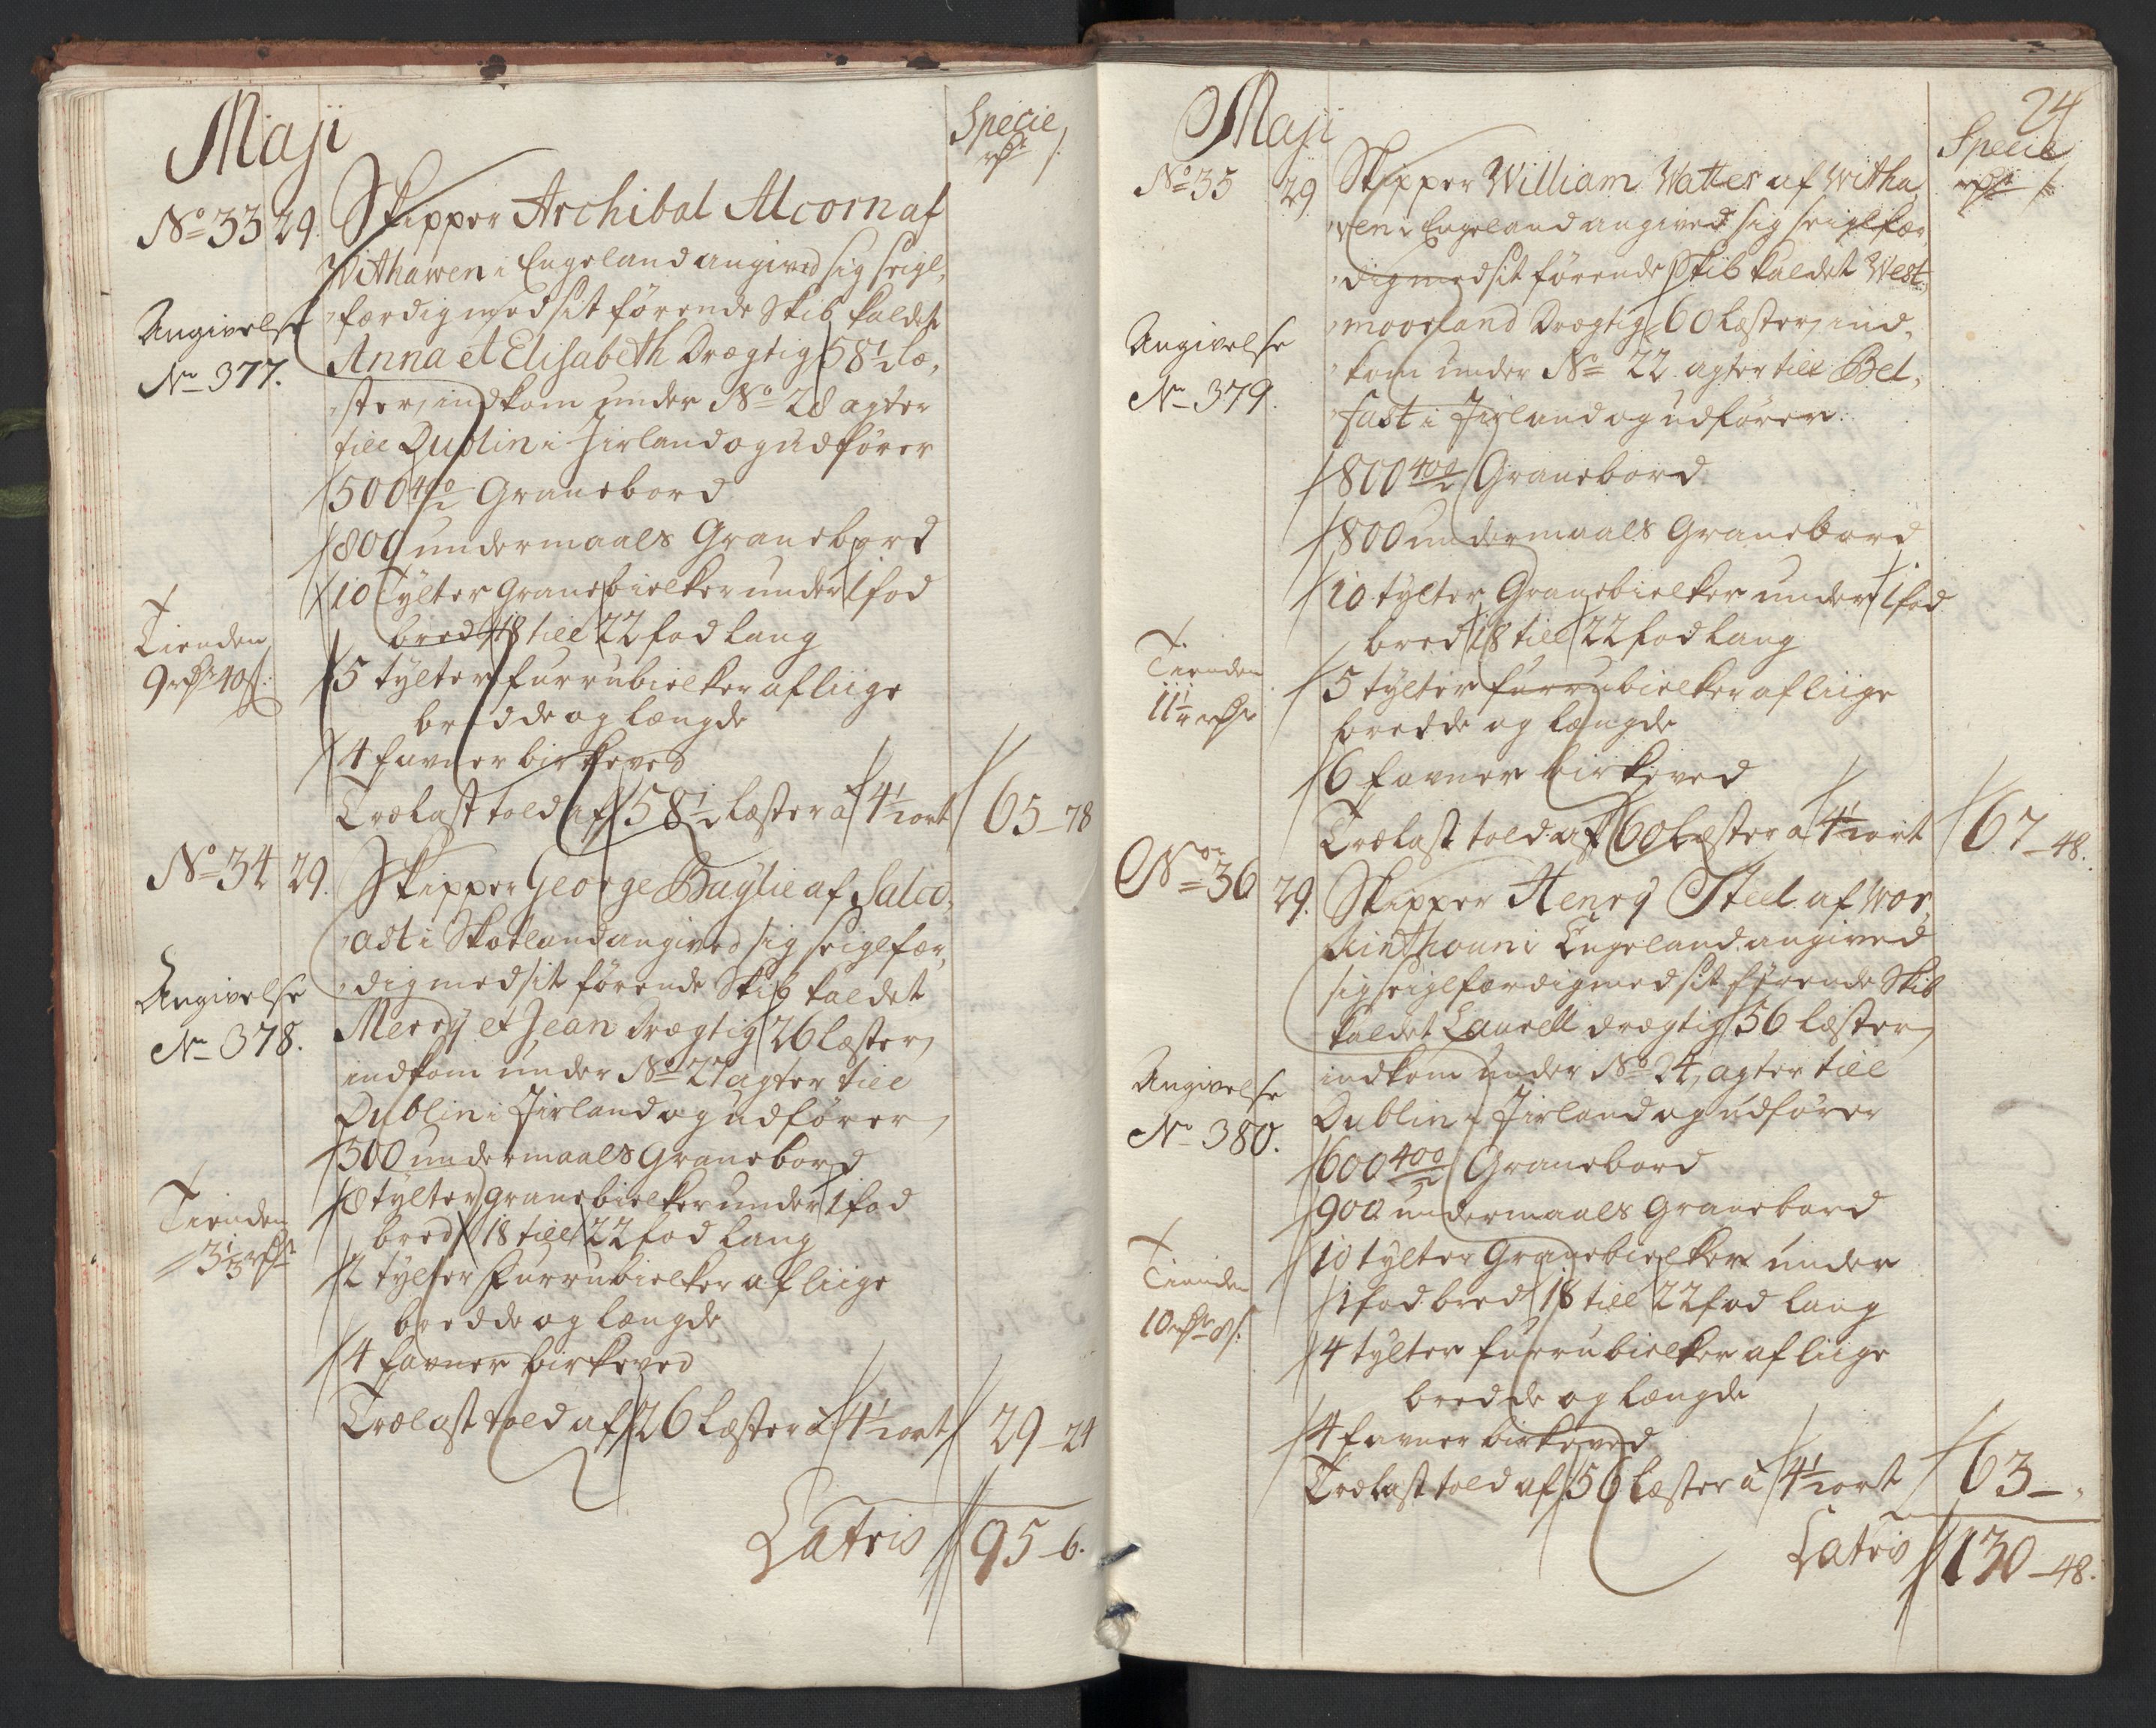 Maji
Specie
rdr s.
No 33 29. Skipper Archibal Alcorn af
Withawen i Engeland angived sig seigl,
færdig med sit førende Skib kaldet
Angivelse
No 377.
Anna et Elisabeth drægtig 58½ læ,
ster, indkom under No 28 agter
till Dublin i Jirland og udfører
500 400/2 Granebord
800 undermaals Granebord
10 Tylter Granebielker under 1 fod
bred 18 till 22 fod lang
Tienden
9 rdr 40 s:
5 tylter furrubielker af liige
bredde og længde
4 favner birkeved
Trælast told af 58½ læster à 4½ ort 65 - 78
No 34 29. Skipper George Baylie af Salco,
ast i Skotland angived sig seiglfær,
dig med sit førende Skib kaldet
Angivelse
No 378.
Merry et Jean drægtig 26 læster,
indkom under No 27 agter till
Dublin i Jirland og udfører,
300 undermaals Granebord
8 tylter granebielker under 1 fod
bred 18 till 22 fod lang
Tienden
3⅓ rdr
2 tylter Furrubielker af liige
bredde og længde
4 favner birkeved
Trælast told af 26 læster à 4½ ort 29 - 24
Latris 95 - 6.
24
Maji
Specie
rdr s
No 35 29. Skipper William Watter af Witha,
ven i Engeland angived sig seiglfær,
dig med sit førende Skib kaldet West,
mooreland drægtig 60 læster, ind,
kom under No 22 agter till Bel,
fast i Jirland og udfører.
Angivelse
No 379.
800 400/2 Granebord
800 undermaals Granebord
10 tylter Granebielker under 1 fod
bred 18 till 22 fod lang
Tienden
11¼ rdr
5 tylter furrubielker af liige
bredde og længde
6 favner birkeved
Trælast told af 60 læster à 4½ ort 67 - 48.
No 36 29. Skipper Henry Steel af Wor,
kinthoun i Engeland angived
sig seiglfærdig med sit førende Skib
kaldet Laurell drægtig 56 læster,
indkom under No 24, agter till
Dublin i Jirland og udfører
Angivelse
No 380.
600 400/2 Granebord
900 undermaals Granebord
10 tylter Granebielker under
1 fod bred 18 till 22 fod lang
Tienden
10 rdr 8 s:
4 tylter furrubielker af liige
bredde og længde
4 favner birkeved
Trælast told af 56 læster à 4½ ort 63 - ,
Latris 130 - 48.